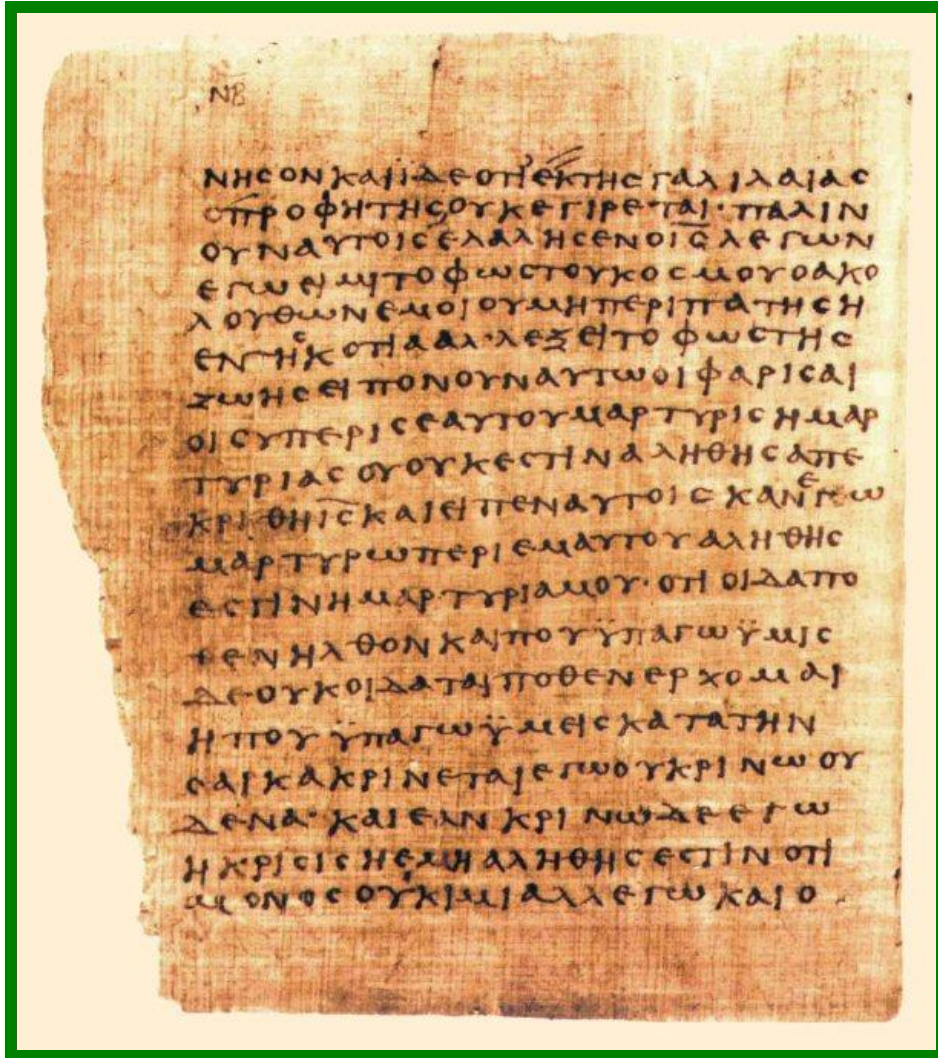 ΝΒ
ΝΗϹΟΝΚΑΙΪΔΕΟΤΙ ΕΚΤΗϹΓΑΛΙΛΑΙΑϹ
ΟΠΡΟΦΗΤΗϹΟΥΚΕΓΙΡΕΤΑΙ· ΠΑΛΙΝ
ΟΥΝΑΥΤΟΙϹΕΛΑΛΗϹΕΝΟΙϹ̅ΛΕΓΩΝ
ΕΓΩΕΙΜΙΤΟΦΩϹΤΟΥΚΟϹΜΟΥΟΑΚΟ
ΛΟΥΘΩΝΕΜΟΙΟΥΜΗΠΕΡΙΠΑΤΗϹΗ
ΕΝΤΗϹΚΟΤΙΑΑΛ·ΛΕΞΕΙΤΟΦΩϹΤΗϹ
ΖΩΗϹΕΙΠΟΝΟΥΝΑΥΤΩΟΙΦΑΡΙϹΑΙ
ΟΙϹΥΠΕΡΙϹΕΑΥΤΟΥΜΑΡΤΥΡΙϹΗΜΑΡ
ΤΥΡΙΑϹΟΥΟΥΚΕϹΤΙΝΑΛΗΘΗϹΑΠΕ
ΚΡΙΘΗΙϹ̅ΚΑΙΕΙΠΕΝΑΥΤΟΙϹΚΑΝΕΓΩ
ΜΑΡΤΥΡΩΠΕΡΙΕΜΑΥΤΟΥΑΛΗΘΗϹ
ΕϹΤΙΝΗΜΑΡΤΥΡΙΑΜΟΥ·ΟΤΙΟΙΔΑΠΟ
ΘΕΝΗΛΘΟΝΚΑΙΠΟΥΫΠΑΓΩΫΜΙϹ
ΔΕΟΥΚΟΙΔΑΤΑΙΠΟΘΕΝΕΡΧΟΜΑΙ
ΗΠΟΥΫΠΑΓΩΫΜΕΙϹΚΑΤΑΤΗΝ
ϹΑΙΚΑΚΡΙΝΕΤΑΙΕΓΩΟΥΚΡΙΝΩΟΥ
ΔΕΝΑ· ΚΑΙΕΑΝΚΡΙΝΩΔΕΕΓΩ
ΗΚΡΙϹΙϹΗΕΜΗΑΛΗΘΗϹΕϹΤΙΝΟΤΙ
ΜΟΝΟϹΟΥΚΙΜΙΑΛΛΕΓΩΚΑΙΟ